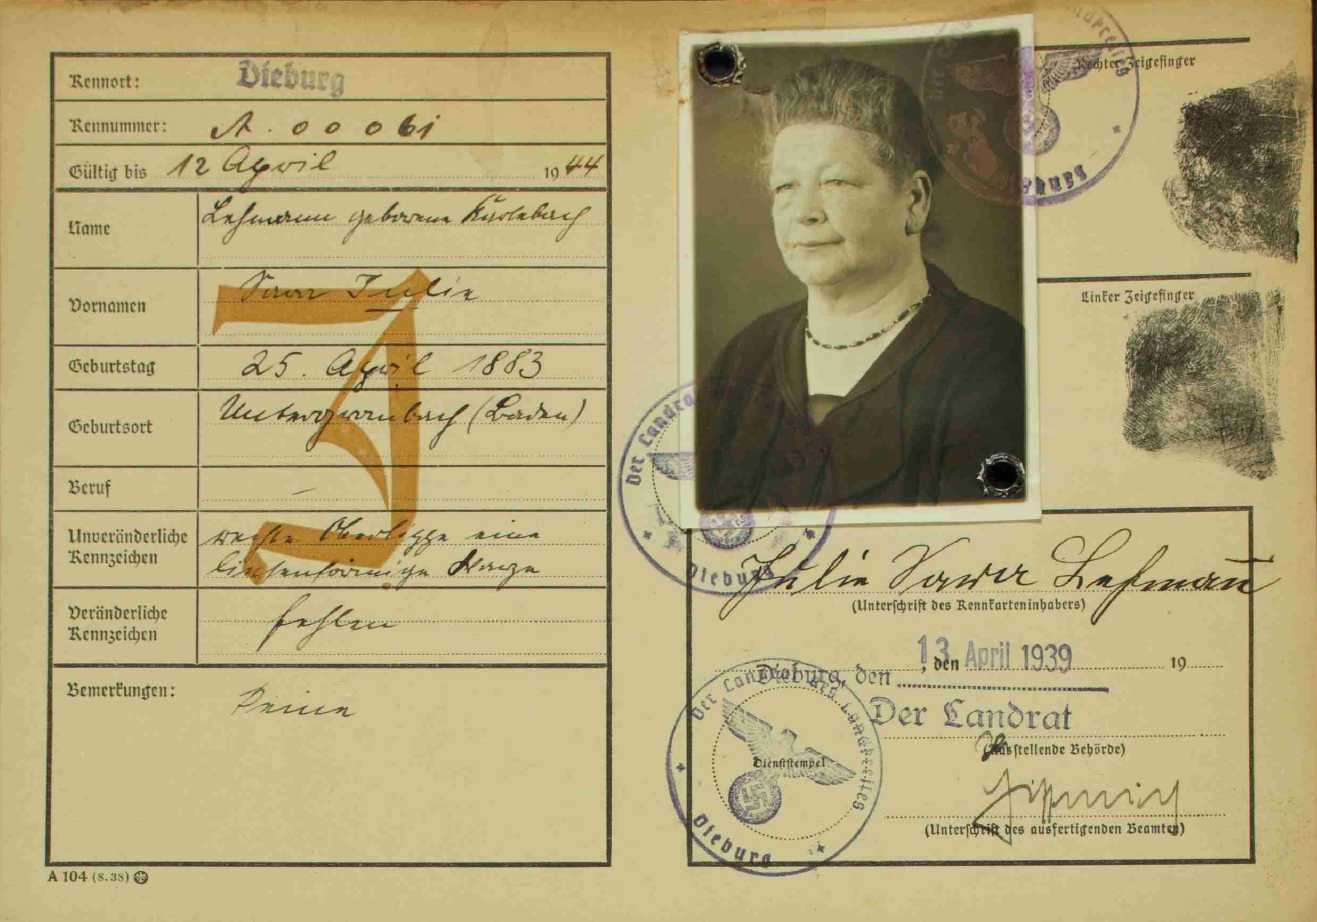 Kennort: Dieburg
Kennummer: A. 00061
Gültig bis 12 April 1944
Name Lehmann geborene Karlebach
Vornamen Sara Julie
Geburtstag 25. April 1883
Geburtsort Untergrombach (Baden)
Beruf —
Unveränderliche Kennzeichen rechte Oberlippe eine
linsenförmige Warze
Veränderliche Kennzeichen fehlen
Bemerkungen: Keine
J
A 104 (8.38)
Rechter Zeigefinger
Linker Zeigefinger
Der Landrat
Dieburg
Julie Sara Lehmann
(Unterschrift des Kennkarteninhabers)
Dieburg, den 13. April 1939
, den 19
Der Landrat
(Ausstellende Behörde)
(Unterschrift des ausfertigenden Beamten)
Der Landrat des Landkreises
Dienststempel
Dieburg